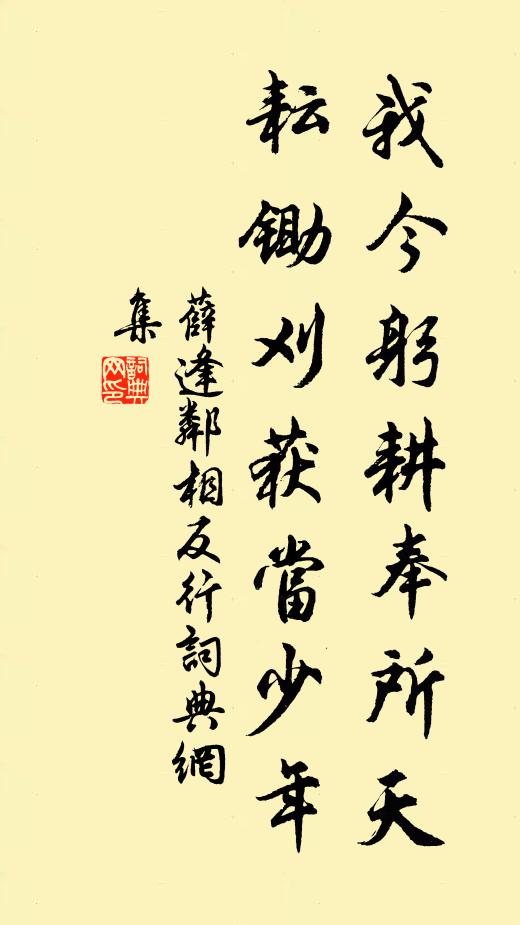 我今躬耕奉所天
耘鋤刈获當少年
薛逢鄰相反行詞典網
集
詞典
网印